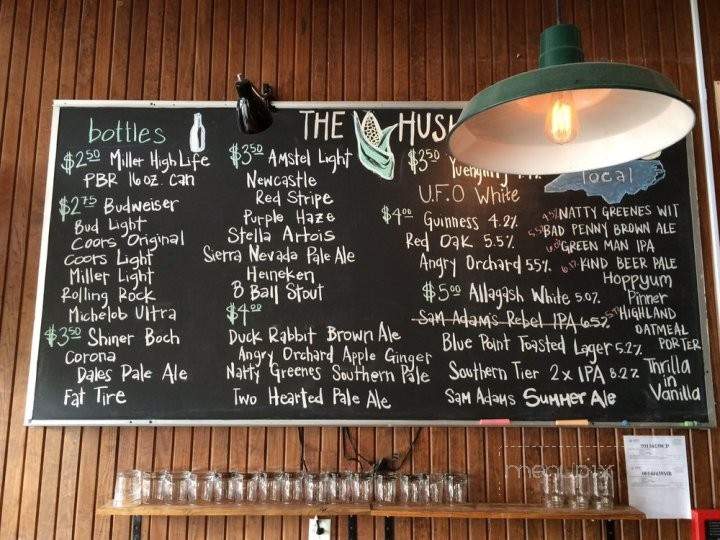 THE HUSK
bottles
$2.50 Miller High Life
PBR 16oz. can
$2.75 Budweiser
Bud Light
Coors Original
Coors Light
Miller Light
Rolling Rock
Michelob Ultra
$3.50 Shiner Boch
Corona
Dales Pale Ale
Fat Tire
$3.50 Amstel Light
Newcastle
Red Stripe
Purple Haze
Stella Artois
Sierra Nevada Pale Ale
Heineken
B Ball Stout
$4.00
Duck Rabbit Brown Ale
Angry Orchard Apple Ginger
Natty Greenes Southern Pale
Two Hearted Pale Ale
$3.50 Yuengling
U.F.O White
$4.00 Guinness 4.2%
Red Oak 5.5%
Angry Orchard 5.5%
$5.00 Allagash White 5.0%
Sam Adams Rebel IPA 6.5%
Blue Point Toasted Lager 5.2%
Southern Tier 2x IPA 8.2%
Sam Adams Summer Ale
local
NATTY GREENES WIT
BAD PENNY BROWN ALE
GREEN MAN IPA
KIND BEER PALE
Hoppyum
Pinner
HIGHLAND
OATMEAL
PORTER
Thrilla
in
Vanilla
menupix